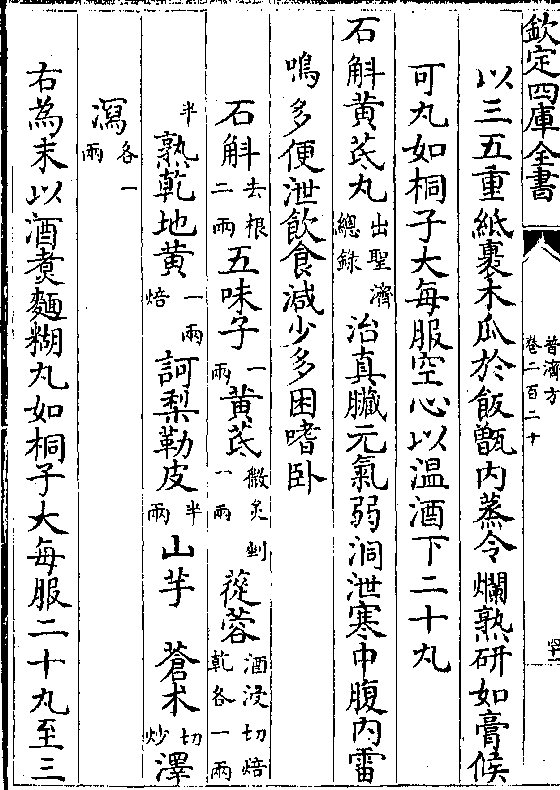 欽定四庫全書
普濟方
卷二百二十
以三五重紙裹木瓜於飯甑内蒸令爛熟研如膏候
可丸如桐子大每服空心以温酒下二十丸
石斛黄芪丸出聖濟總錄治真臟元氣弱洞泄寒中腹内雷
鳴多便泄飲食減少多困嗜卧
石斛去根二兩五味子一兩黄芪微炙剉一兩蓯蓉酒浸切焙乾各一兩
半熟乾地黄一兩焙訶梨勒皮半兩山芋蒼术切炒澤
瀉各一兩
右為末以酒煮麵糊丸如桐子大每服二十丸至三